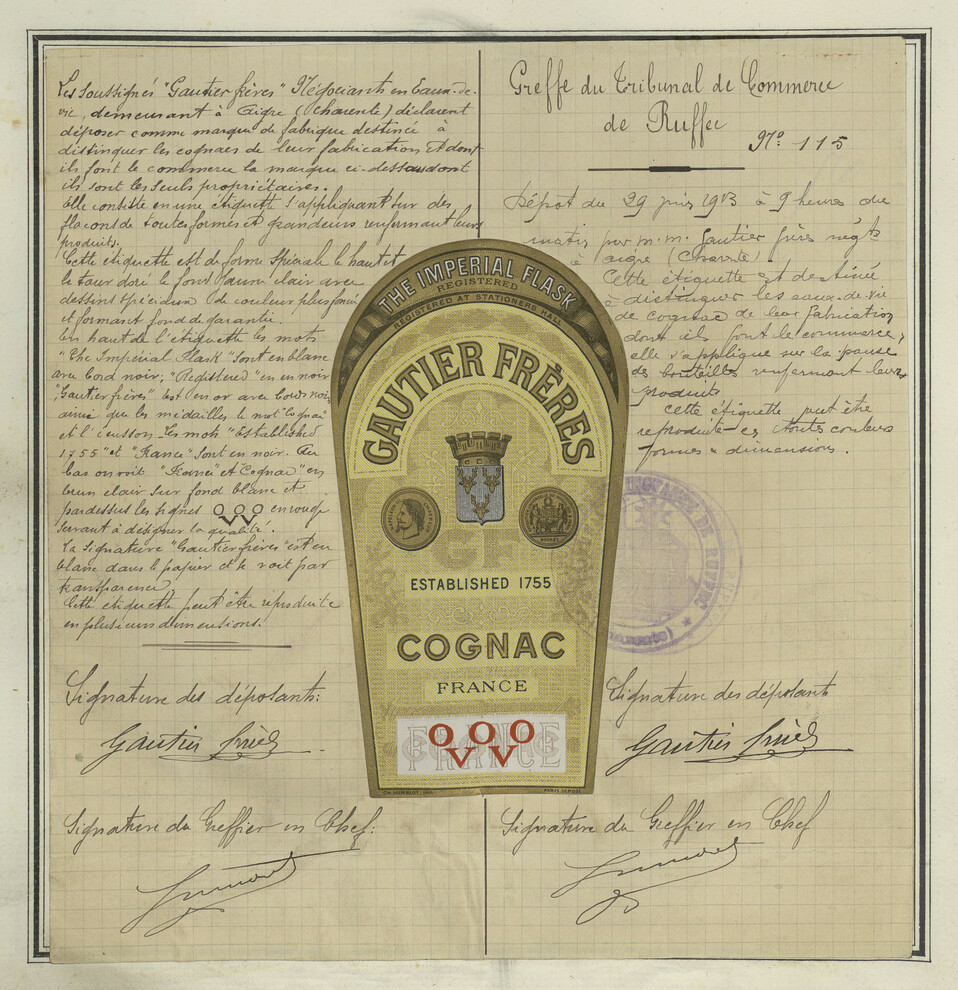 Les soussignés "Gautier frères" Négociants en Eaux-de-
vie, demeurant à Aigre (Charente) déclarent
déposer comme marque de fabrique destinée à
distinguer les cognacs de leur fabrication et dont
ils font le commerce la marque ci-dessus dont
ils sont les seuls propriétaires.
Elle consiste en une étiquette s'appliquant sur des
flacons de toutes formes et grandeurs renfermant leurs
produits.
Cette étiquette est de forme spéciale le haut et
le tour doré le fond jaune clair avec
dessin spécial de couleur plus foncé
et formant fond de garantie.
En haut de l'étiquette les mots
"The Impérial Flask" sont en blanc
avec bord noir; "Registered" en noir
"Gautier frères" est en or avec bords noirs
ainsi que les médailles le mot "Cognac"
et l'écusson. Les mots "Established
1755" et "France" sont en noir. Au
bas on voit "France" et "Cognac" en
brun clair sur fond blanc et
pardessus les signes OVOVO en rouge
servant à désigner la qualité.
La signature "Gautier frères" est en
blanc dans le papier et se voit par
transparence
Cette étiquette peut être reproduite
en plusieurs dimensions.
Signature des déposants:
Gautier frères
Signature du Greffier en Chef:
THE IMPERIAL FLASK
REGISTERED
REGISTERED AT STATIONERS HALL
GAUTIER FRÈRES
GF
ESTABLISHED 1755
COGNAC
FRANCE
FRANCE
OVOVO
Greffe du Tribunal de Commerce
de Ruffec
No. 115
Dépôt du 29 juin 1913 à 9 heures du
matin par M.M. Gautier frères négts
à Aigre (Charente)
Cette étiquette est destinée
à distinguer les eaux-de-vie
de cognac de leur fabrication
dont ils font le commerce,
elle s'applique sur la panse
des bouteilles renfermant leurs
produits
Cette étiquette peut être
reproduite en toutes couleurs
formes & dimensions.
DE RUFFEC
Signature des déposants
Gautier frères
Signature du Greffier en Chef